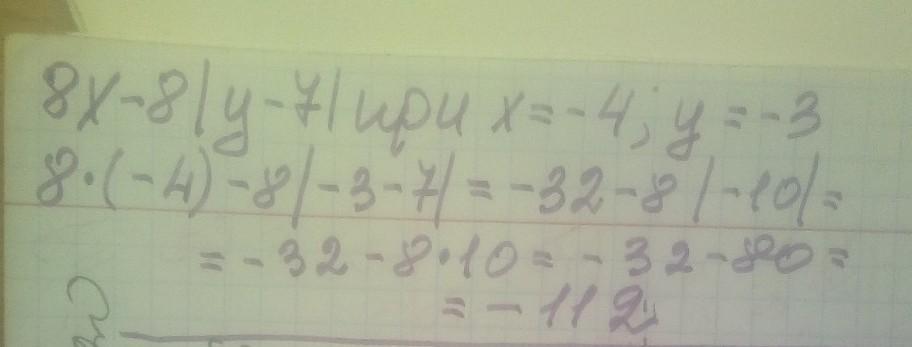 8x-8|y-7| при x=-4; y=-3
8·(-4)-8|-3-7|=-32-8|-10|=
=-32-8·10=-32-80=
=-112